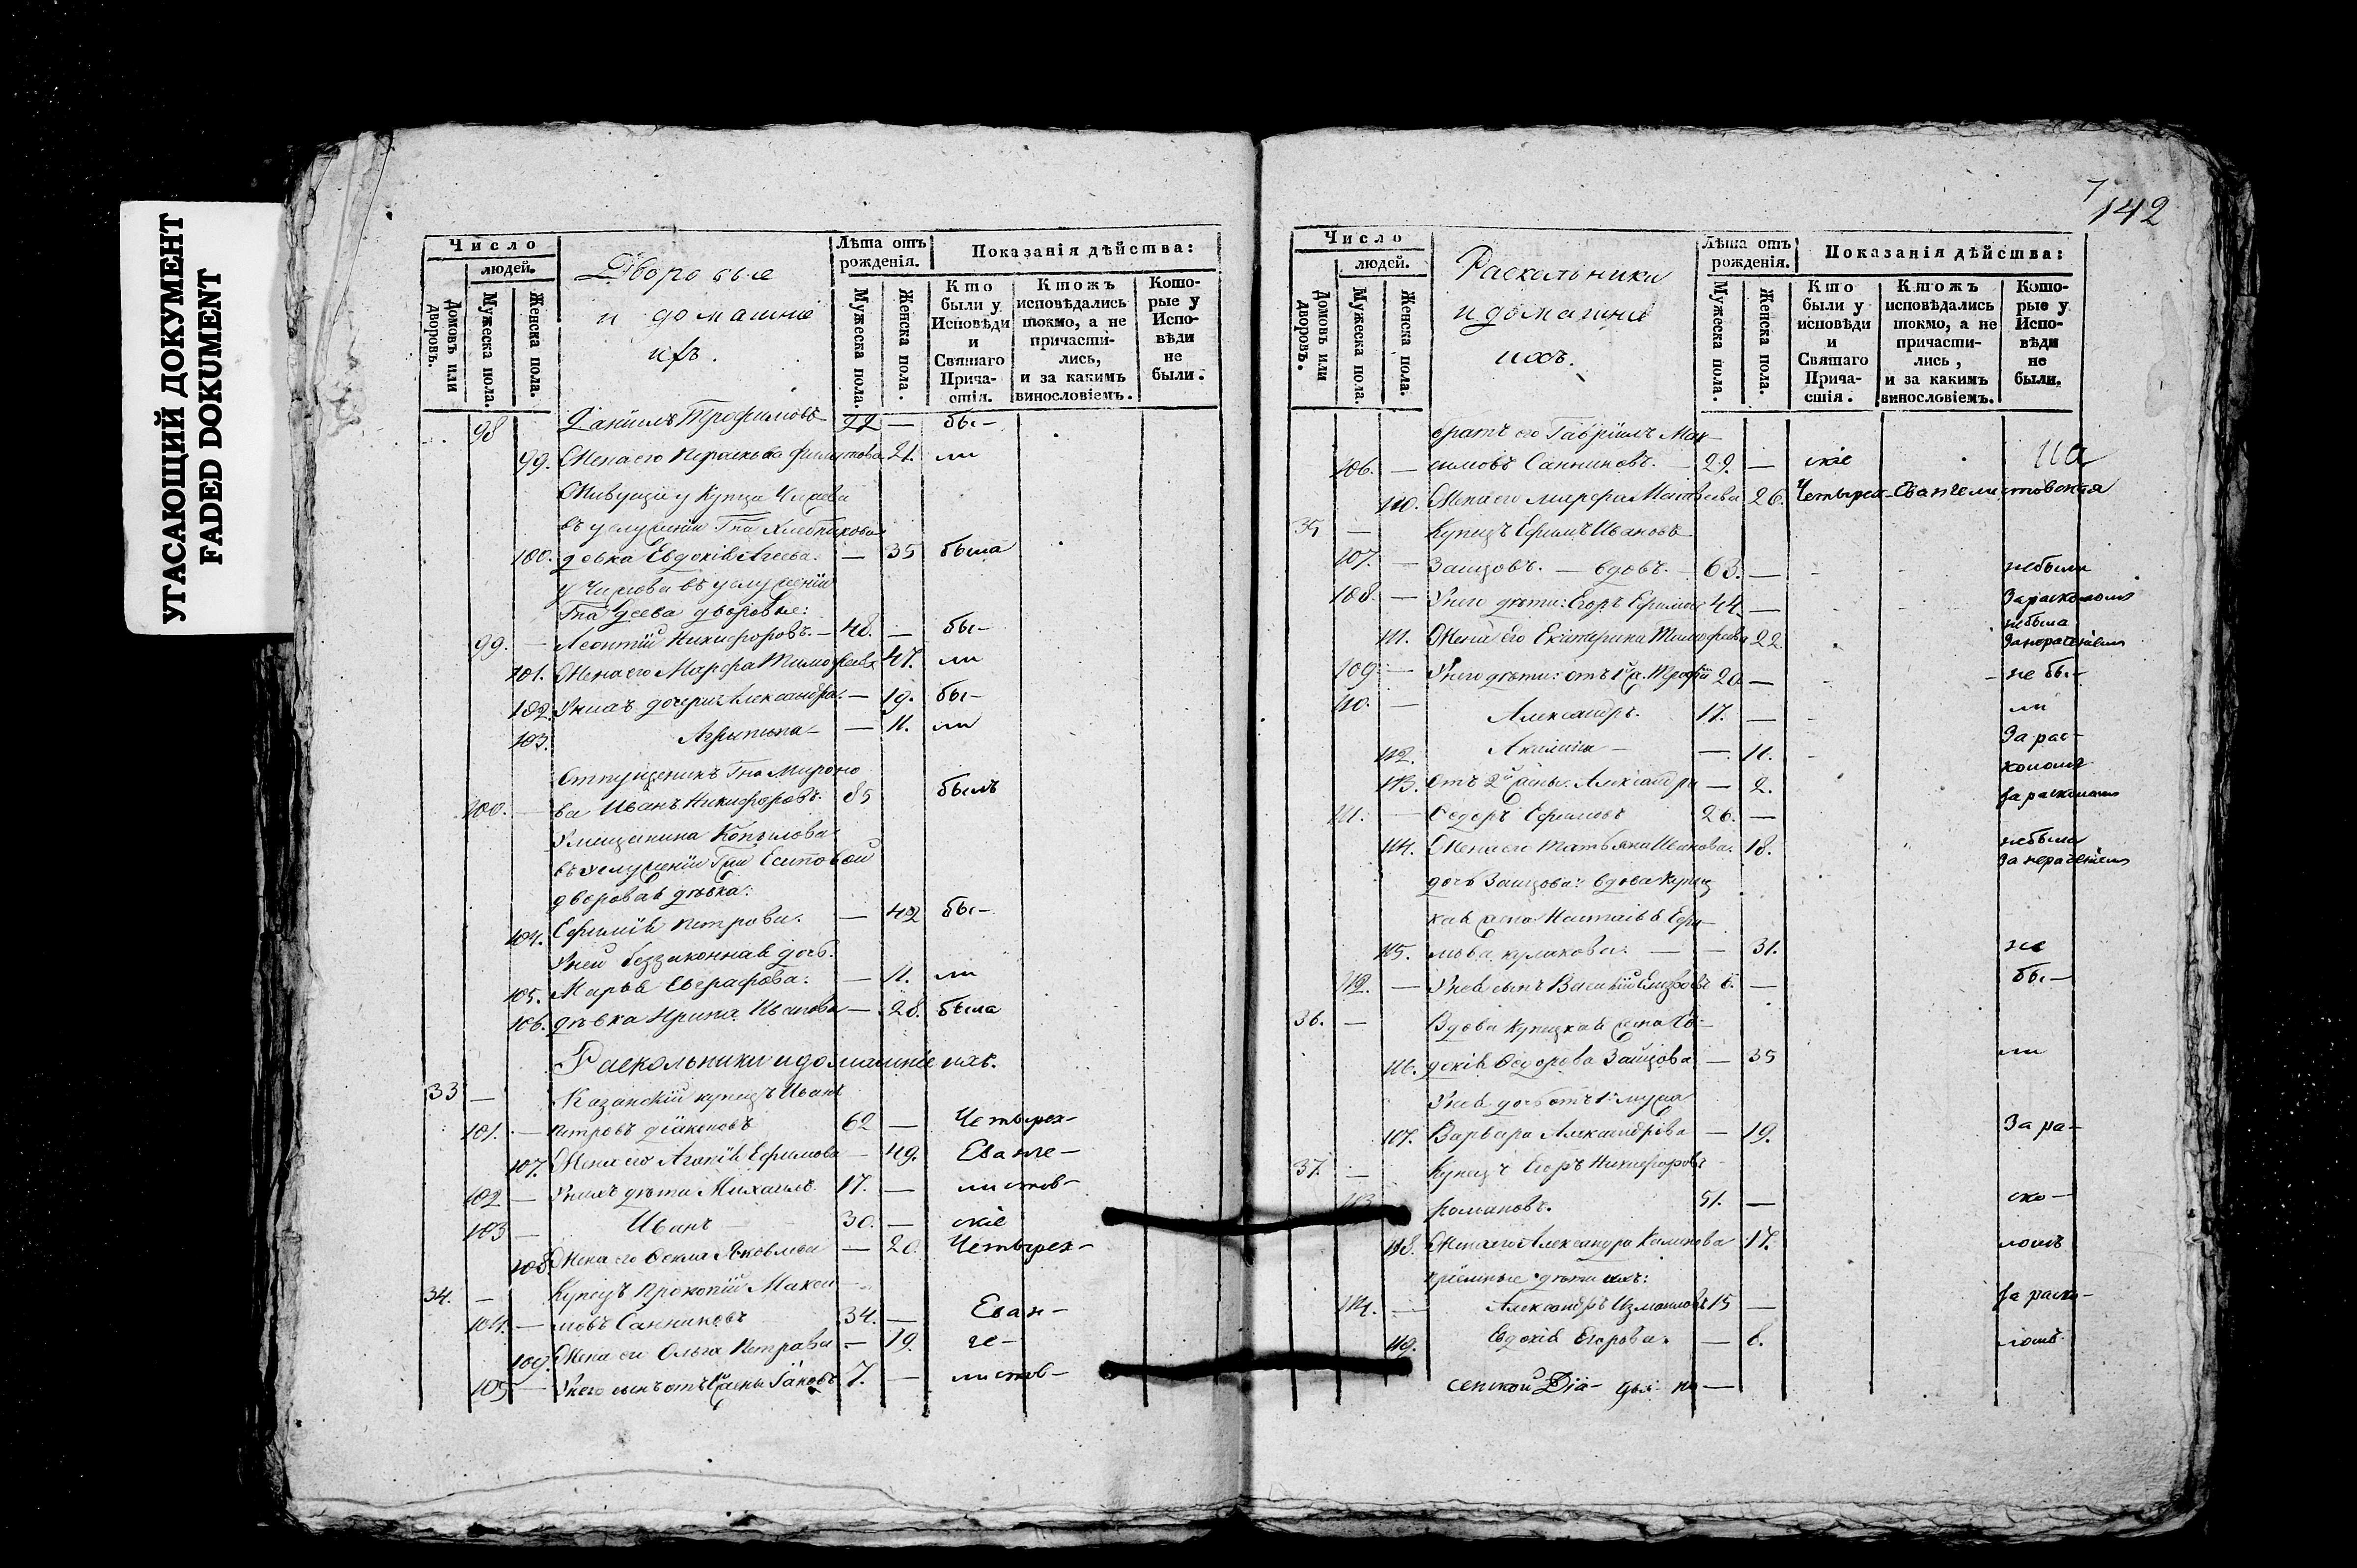 УГАСАЮЩИЙ ДОКУМЕНТ
FADED DOKUMENT
Число
людей.
Домовъ или дворовъ.
Мужеска пола.
Женска пола.
Дворовые
и домашніе
ихъ.
Лѣта отъ рожденія.
Мужеска пола.
Женска пола.
Показанія дѣйства:
Кто были у Исповѣди и Святаго Прича-стія.
Ктожъ исповѣдались токмо, а не причасти-лись, и за какимъ винословіемъ.
Кото-рые у Испо-вѣди не были.
98 Даніилъ Трофимовъ 22 — бы-
99. Жена его Параскова Филипова 21. ли
Живущіи у Купца
въ услуженіи Гна Хлебникова
100. девка Евдокія Агеева. — 35 была
въ услуженіи
Гна дворовые:
99. — Леонтій Никифоровъ. — 48. — бы-
101. Жена его Марфа Тимофеева 47. ли
102. У нихъ дочери Александра — 19. бы-
103. Агрипина — — 11. ли
Отпущеникъ Гна Мироно
100. — ва Иванъ Никифоровъ. 85 былъ
У мещанина Копылова
въ услуженіи Гжи Есиповой
дворовая дѣвка:
104. Ефимія Петрова. — 42 бы-
У ней беззаконная дочь.
105. Марья Евграфова: — 11. ли
106. дѣвка Ирина Иванова — 28. была
Раскольники и домашніе ихъ.
33 — Казанскій купецъ Иванъ
101. — Петровъ Діаконовъ 62 — Четырех-
107. Жена его Агафія Ефимова — 49. Еванге-
102 — У нихъ дѣти Михаилъ 17. — листов-
103 — Иванъ 30. — скіе
108. Жена его Фекла Яковлева — 20. Четырех-
34. — Купецъ Прокопій Макси
104. — мовъ Санниковъ 34. — Еван-
109. Жена его Ольга Петрова — 19. ге-
105 — У него сынъ отъ 1й жены Іаковъ 7. — листов-
142
Число
людей.
Домовъ или дворовъ.
Мужеска пола.
Женска пола.
Раскольники
и домашніе
ихъ.
Лѣта отъ рожденія.
Мужеска пола.
Женска пола.
Показанія дѣйства:
Кто были у исповѣди и Святаго Прича-стія.
Ктожъ исповѣдались токмо, а не причасти-лись, и за какимъ винословіемъ.
Кото-рые у Испо-вѣди не были.
братъ его Гавріилъ Мак-
106. — симовъ Санниковъ. — 29. — скіе
110. Жена его Марфа Матвеева 26. Четырех-Евангелистовская
35 — Купецъ Ефимъ Ивановъ
107. — Заицовъ. — вдовъ. — 63. — небыли
108. — У него дѣти: Егоръ Ефимовъ 44. — За расколомъ
111. Жена его Екатерина Тимофеева 22 небыла
За нераченіемъ
109 — У него дѣти: отъ 1й жены Трофим 20 — — не бы-
110. — Александръ. 17. — ли
112. Акилина — — 11. За рас-
коломъ
113. отъ 2й жены Александра — 2. За расколомъ
111. — Федоръ Ефимовъ 26. —
114. Жена его Татьяна Иванова. 18. небыла
За нераченіемъ
дочь Заицова: вдова купец
кая жена Настасья Ефи-
115. мова Кулакова: — — 31. не
112. — У нея сынъ Василій 6. — бы-
36. — Вдова купецкая жена Ев-
116. докія Федорова Заицова — 35 ли
У нея дочь отъ 1. мужа
107. Варвара Александрова — 19. За ра-
37. — Купецъ Егоръ Никифоровъ
113 Романовъ. 51. — ско-
118. Жена его Александра Калинова 47. ломъ
пріемные дѣти ихъ:
114. — Александръ Измаиловъ 15 — За раско-
119. Евдокія Егорова. — 8. ломъ.